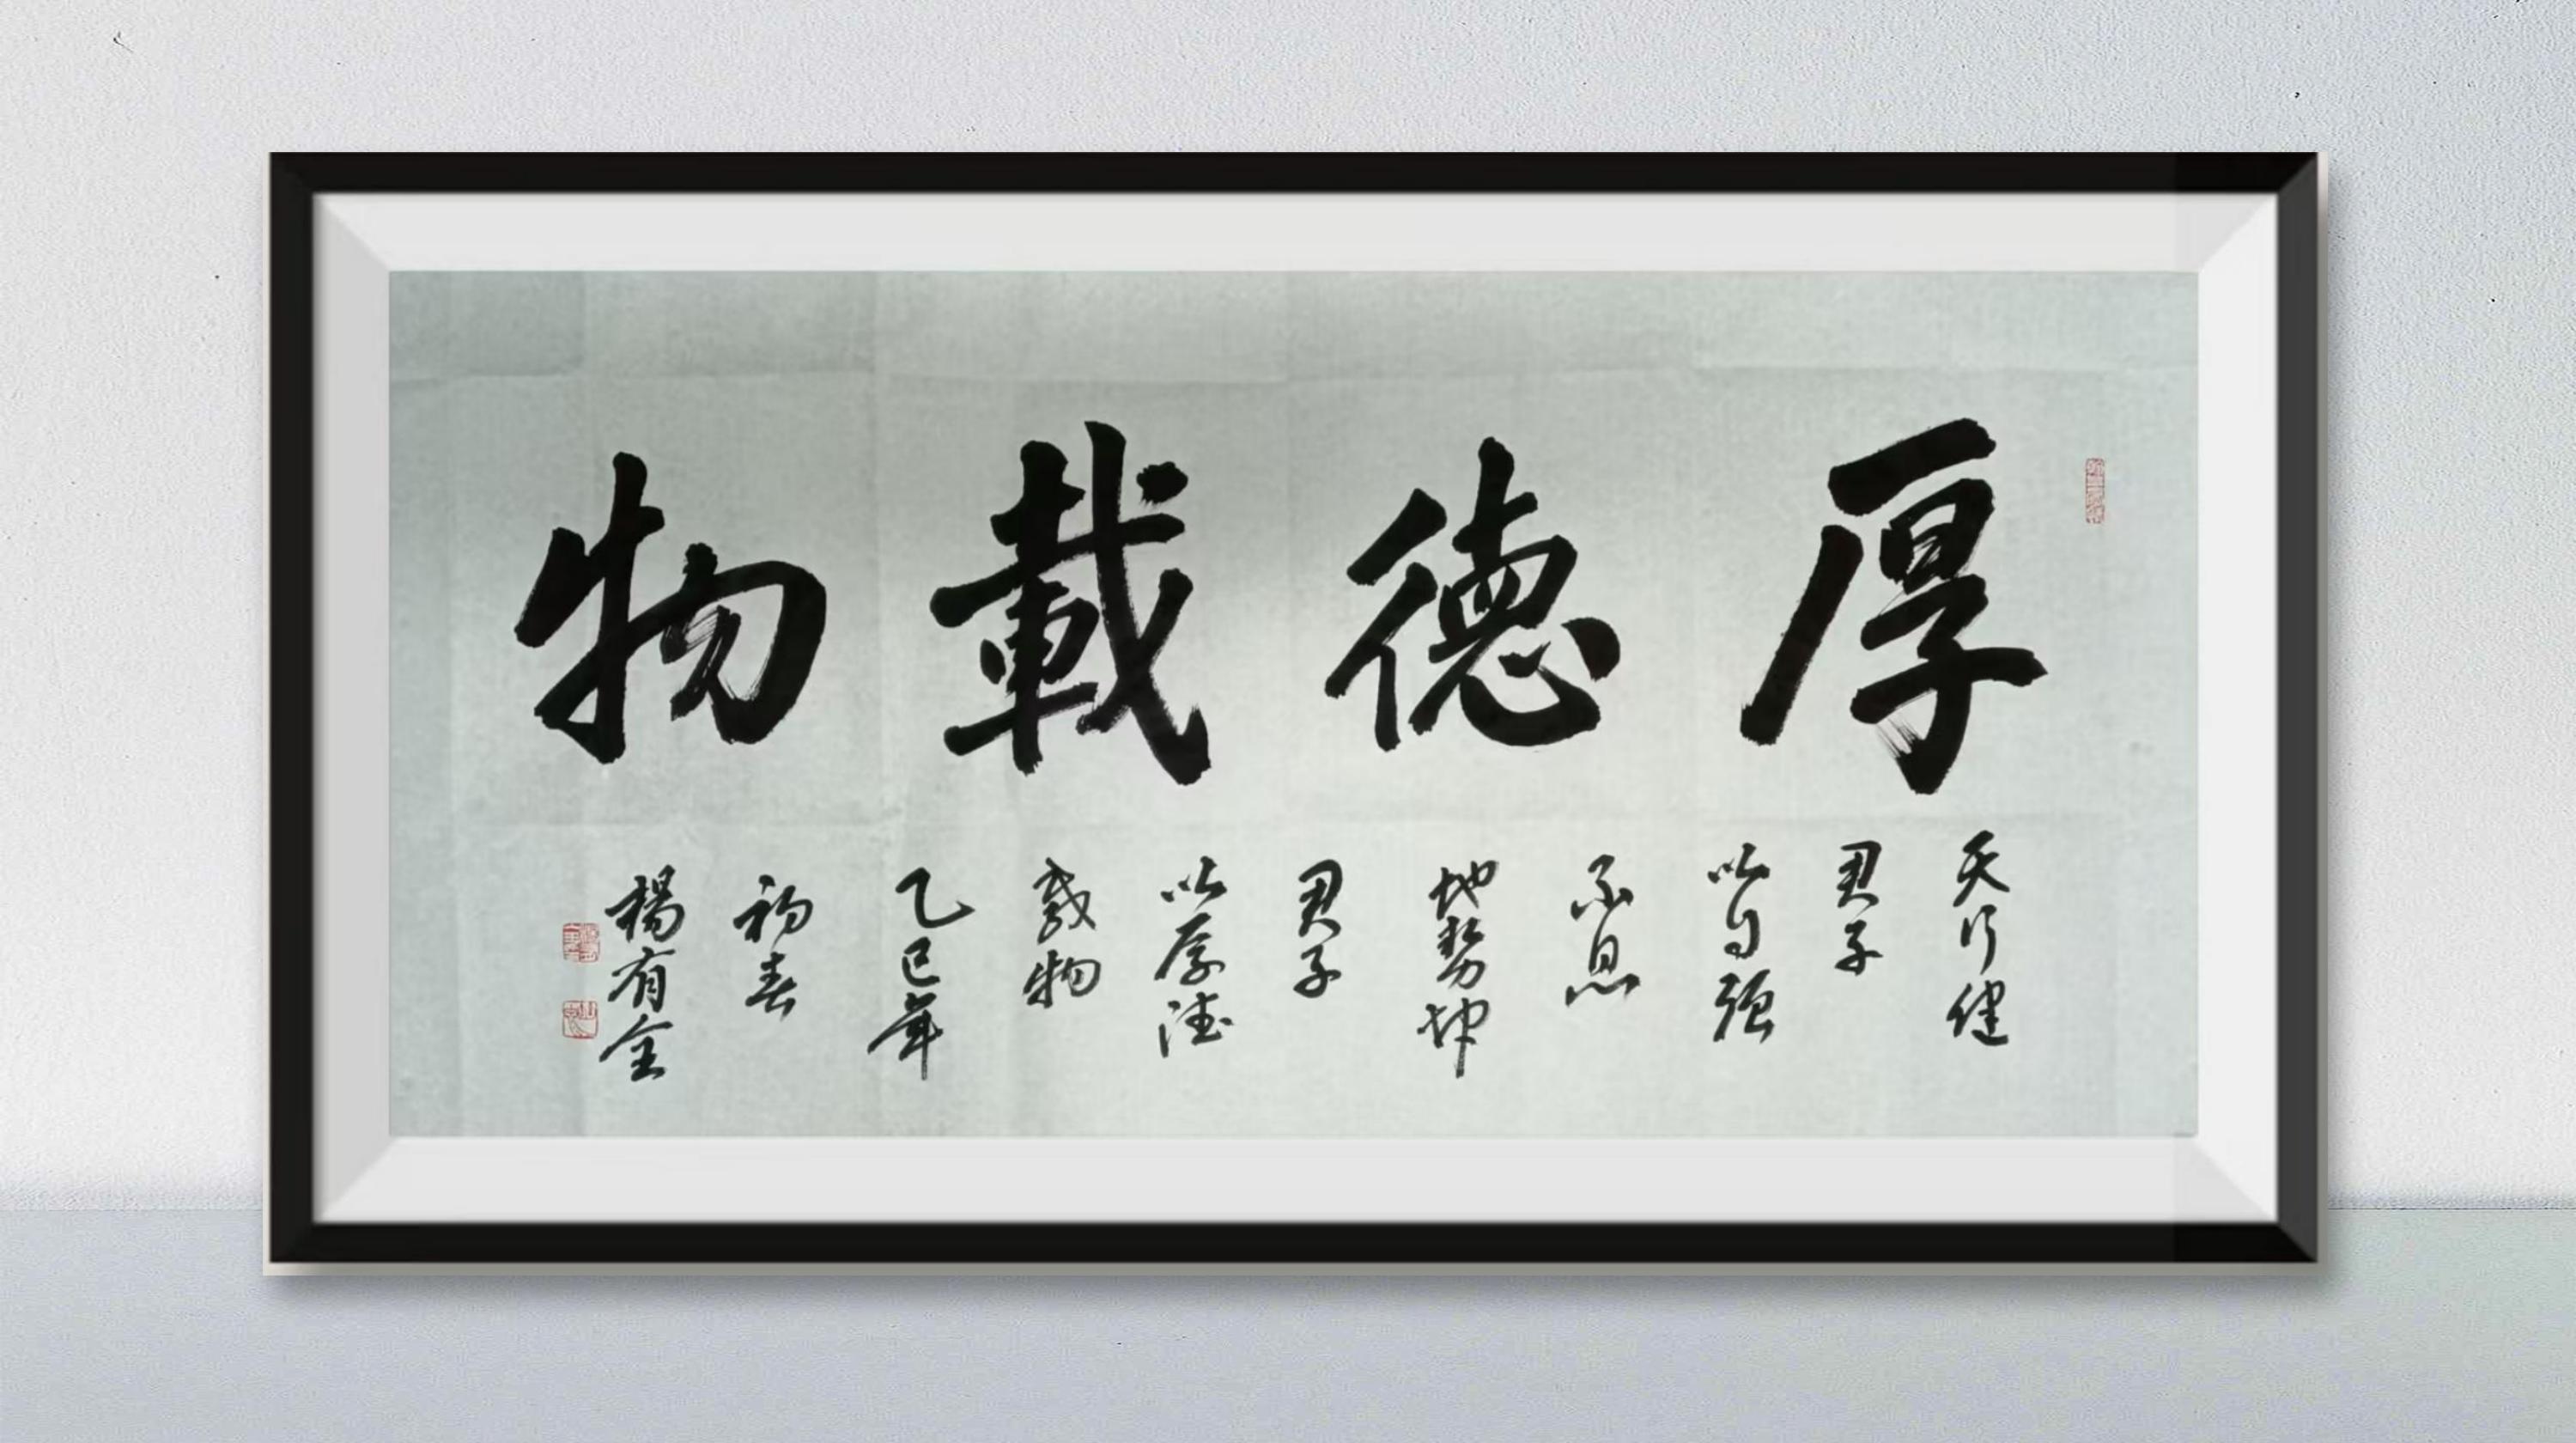 厚德載物
天行健
君子
以自強
不息
地勢坤
君子
以厚德
載物
乙巳年
初春
楊有全